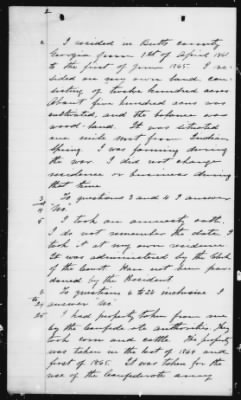 2. I resided in Butts county
Georgia from 1st of April 1861
to the first of June 1865. I re-
sided on my own land con-
sisting of twelve hundred acres
About five hundred acres was
cultivated, and the balance was
wood-land. It was situated
one mile west from Indian
Spring. I was farming during
the war. I did not change
residence or business during
that time
3 To questions 3 and 4 I answer
4 No.
5 I took an amnesty oath.
I do not remember the date I
took it at my own residence
It was administered by the Clerk
of the Court. Have not been par-
doned by the President
6 To questions 6 to 24 inclusive I
24 answer No.
25 I had property taken from me
by the Confederate authorities, they
took corn and cattle. The property
was taken in the last of 1864 and
first of 1865. It was taken for the
use of the Confederate army